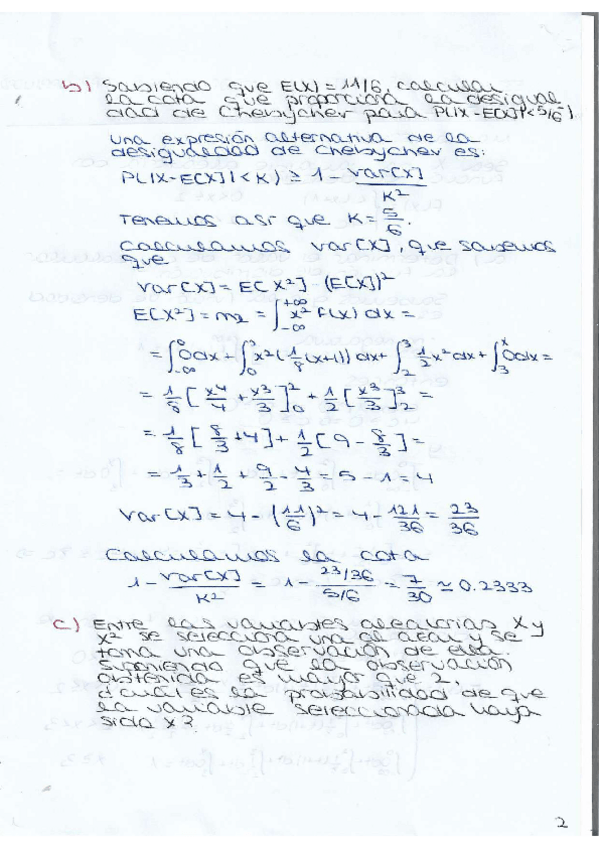 b) Sabiendo que E(X) = 11/6, calcular
la cota que proporciona la desigual
dad de Chebychev para P(|X-E(X)|<5/6).
Una expresión alternativa de la
desigualdad de Chebychev es:
P(|X-E[X]|<K) ≥ 1 - Var[X]/K²
Tenemos así que K = 5/6.
Calculamos Var[X], que sabemos
que
Var[X] = E[X²] - (E[X])²
E[X²] = m₂ = ∫_{-∞}^{+∞} x² f(x) dx =
= ∫_{-∞}^{0} 0dx + ∫_{0}^{2} x² (1/8 (x+1)) dx + ∫_{2}^{3} 1/2 x² dx + ∫_{3}^{x} 0dx =
= 1/8 [x⁴/4 + x³/3]_{0}^{2} + 1/2 [x³/3]_{2}^{3} =
= 1/8 [8/3 + 4] + 1/2 [9 - 8/3] =
= 1/3 + 1/2 + 9/2 - 4/3 = 5 - 1 = 4
Var[X] = 4 - (11/6)² = 4 - 121/36 = 23/36
Calculamos la cota
1 - Var[X]/K² = 1 - 23/36/5/6 = 7/30 ≃ 0.2333
c) Entre las variables aleatorias X y
X² se selecciona una al azar y se
toma una observación de ella.
Suponiendo que la observación
obtenida es mayor que 2,
¿cuál es la probabilidad de que
la variable seleccionada haya
sido X?
2